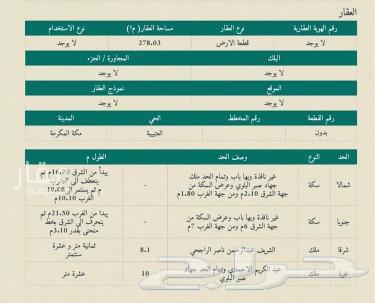 العقار
رقم الهوية العقارية نوع العقار مساحة العقار( م٢) نوع الاستخدام
لا يوجد قطعة الارض 278.03 لا يوجد
البلك المجاورة / الجزء
لا يوجد لا يوجد
الموقع نموذج العقار
لا يوجد لا يوجد
رقم القطعة رقم المخطط الحي المدينة
بدون العتيبية مكة المكرمة
الحد النوع وصف الحد الطول م
شمالا سكة غير نافذة وبها باب وتمام الحد ملك جهاد صبر البلوي وعرض السكة من جهة الشرق 2.10م ومن جهة الغرب 1.80م - يبدأ من الشرق 16.70م ثم ينعطف الى م ثم يستمر الى 10.08 الغرب 10.10م
جنوبا سكة غير نافذة وبها باب وعرض السكة من جهة الشرق 6م ومن جهة الغرب 7م - يبدا من الغرب 21.50م ثم ينحرف الى الشرق بخط منحنى بقدر 3.10م
شرقا ملك الشريف ناصر الراجحي 8.1 ثمانية متر و عشرة سنتمتر
غربا ملك عبد الكريم الاحمدي وتمام الحد جهاد صبر البلوي 10 عشرة متر
حراج
عقار